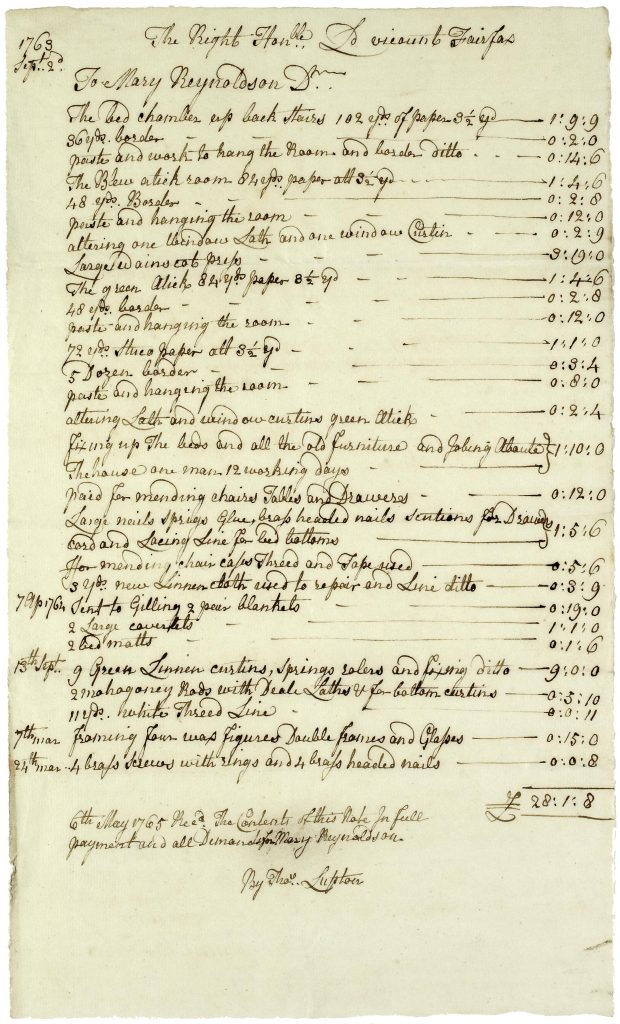 1763 The Right Honble. Ld vicount Fairfax
Sept. 2d.
To Mary Reynoldson Dr.
The bed chamber up back Stairs 102 yds. of paper 3½ yd 1:9:9
36 yds. border 0:2:0
paste and work to hang the Room and border ditto 0:14:6
The Blew atick room 84 yds. paper att 3½ yd 1:4:6
48 yds. Border 0:2:8
paste and hanging the room 0:12:0
altering one Window Lath and one window Curtin 0:2:9
Large Wainscot press 3:19:0
The green Atick 84 yds paper 3½ yd 1:4:6
48 yds. border 0:2:8
paste and hanging the room 0:12:0
72 yds. Stuco paper att 3½ yd 1:1:0
5 Dozen border 0:3:4
paste and hanging the room 0:8:0
altering Lath and window curtins green Atick 0:2:4
fixing up The beds and all the old furniture and Jobing Aboute
The house one man 12 working days 1:10:0
paid for mending chaires Tables and Draweres 0:12:0
Large nails Springs Glue, brass headed nails Scutions for Drawers
cord and Lacing Line for bed bottoms 1:5:6
For mending chair cases Threed and Tape used 0:5:6
3 yds. new Linnen cloth used to repair and Line ditto 0:3:9
7 Ap 1764 Sent to Gilling 2 pear blankets 0:19:0
2 Large coverlets 1:1:0
2 bed matts 0:1:6
13th Sept. 9 Green Linnen curtins, Springs rolers and fixing ditto 9:0:0
2 mahogoney Rods with Deale Laths & for bottom curtins 0:5:10
11 yds. white Threed Line 0:0:11
7th mar Framing four wax figures Double frames and Glasses 0:15:0
24th mar 4 brass Screws with rings and 4 brass headed nails 0:0:8
£ 28:1:8
6th May 1765 Recd. The Contents of this Note In full
payment and all Demands for Mary Reynoldson
By Thos. Lupton